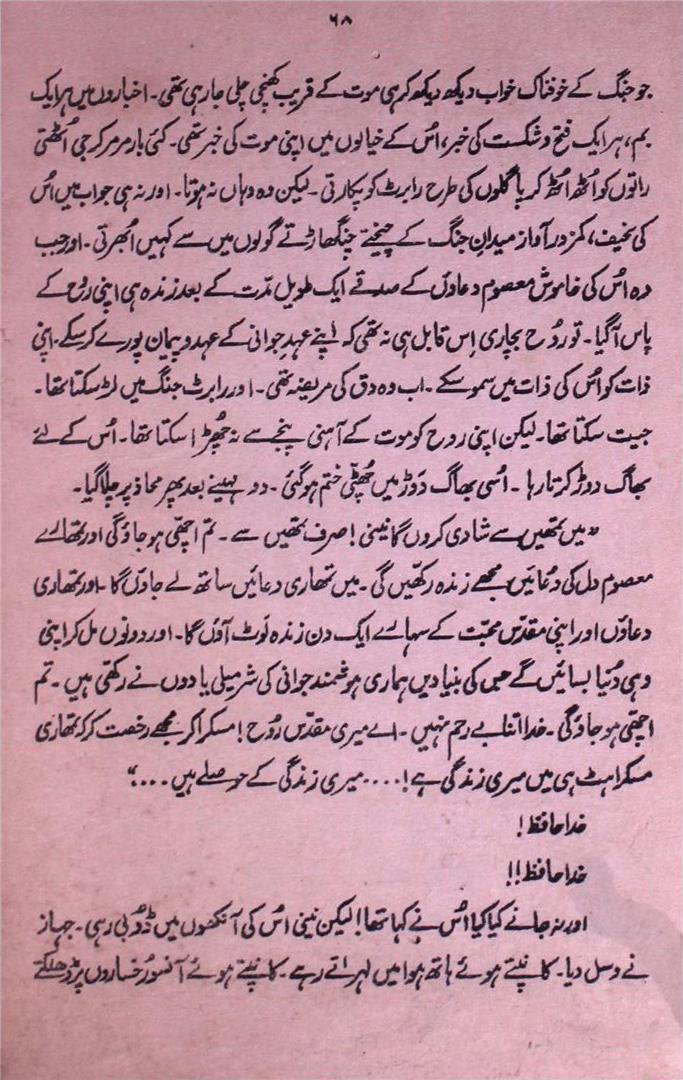 ۶۸
جو جنگ کے خوفناک خواب دیکھ دیکھ کر ہی موت کے قریب کھنچی چلی جا رہی تھی۔ اخباروں میں ہر ایک
بم، ہر ایک فتح و شکست کی خبر، اُس کے خیالوں میں اپنی موت کی خبر تھی۔ کئی بار مر مر کر جی اُٹھتی
راتوں کو اُٹھ اُٹھ کر پاگلوں کی طرح رابرٹ کو پکارتی۔ لیکن وہ وہاں نہ ہوتا۔ اور نہ ہی جواب میں اُس
کی نحیف، کمزور آواز میدانِ جنگ کے چیختے چنگھاڑتے گولوں میں سے کہیں اُبھرتی۔ اور جب
وہ اُس کی خاموش معصوم دعاؤں کے صدقے ایک طویل مدّت کے بعد زندہ ہی اپنی روح کے
پاس آگیا۔ تو روح بچاری اِس قابل ہی نہ تھی کہ اپنے عہدِ جوانی کے عہد و پیمان پورے کر سکے۔ اپنی
ذات کو اُس کی ذات میں سمو سکے۔ اب وہ دق کی مریضہ تھی۔ اور رابرٹ جنگ میں لڑ سکتا تھا۔
جیت سکتا تھا۔ لیکن اپنی روح کو موت کے آہنی پنجے سے نہ چھڑا سکتا تھا۔ اُس کے لئے
بھاگ دوڑ کرتا رہا۔ اسی بھاگ دَوڑ میں چھٹی ختم ہو گئی۔ دو مہینے بعد پھر محاذ پر چلا گیا۔
"میں تمھیں سے شادی کروں گا نینی! صرف تمھیں سے۔ تم اچھی ہو جاؤ گی اور تمھارے
معصوم دل کی دُعائیں مجھے زندہ رکھیں گی۔ میں تمھاری دعائیں ساتھ لے جاؤں گا۔ اور تمھاری
دعاؤں اور اپنی مقدّس محبّت کے سہارے ایک دن زندہ لَوٹ آؤں گا۔ اور دونوں مل کر اپنی
وہی دُنیا بسائیں گے جس کی بنیادیں ہماری ہوشمند جوانی کی شرمیلی یادوں نے رکھی ہیں۔ تم
اچھی ہو جاؤ گی۔ خدا اتنا بے رحم نہیں۔ اے میری مقدّس رُوح! مسکرا کر مجھے رخصت کر کہ تمھاری
مسکراہٹ ہی میں میری زندگی ہے!.... میری زندگی کے حوصلے ہیں...."
خدا حافظ!
خدا حافظ!!
اور نہ جانے کیا کیا اُس نے کہا تھا! لیکن نینی اُس کی آنکھوں میں ڈوبی رہی۔ جہاز
نے وسل دیا۔ کانپتے ہوئے ہاتھ ہوا میں لہراتے رہے۔ کانپتے ہوئے آنسو رخساروں پر ڈھلکتے